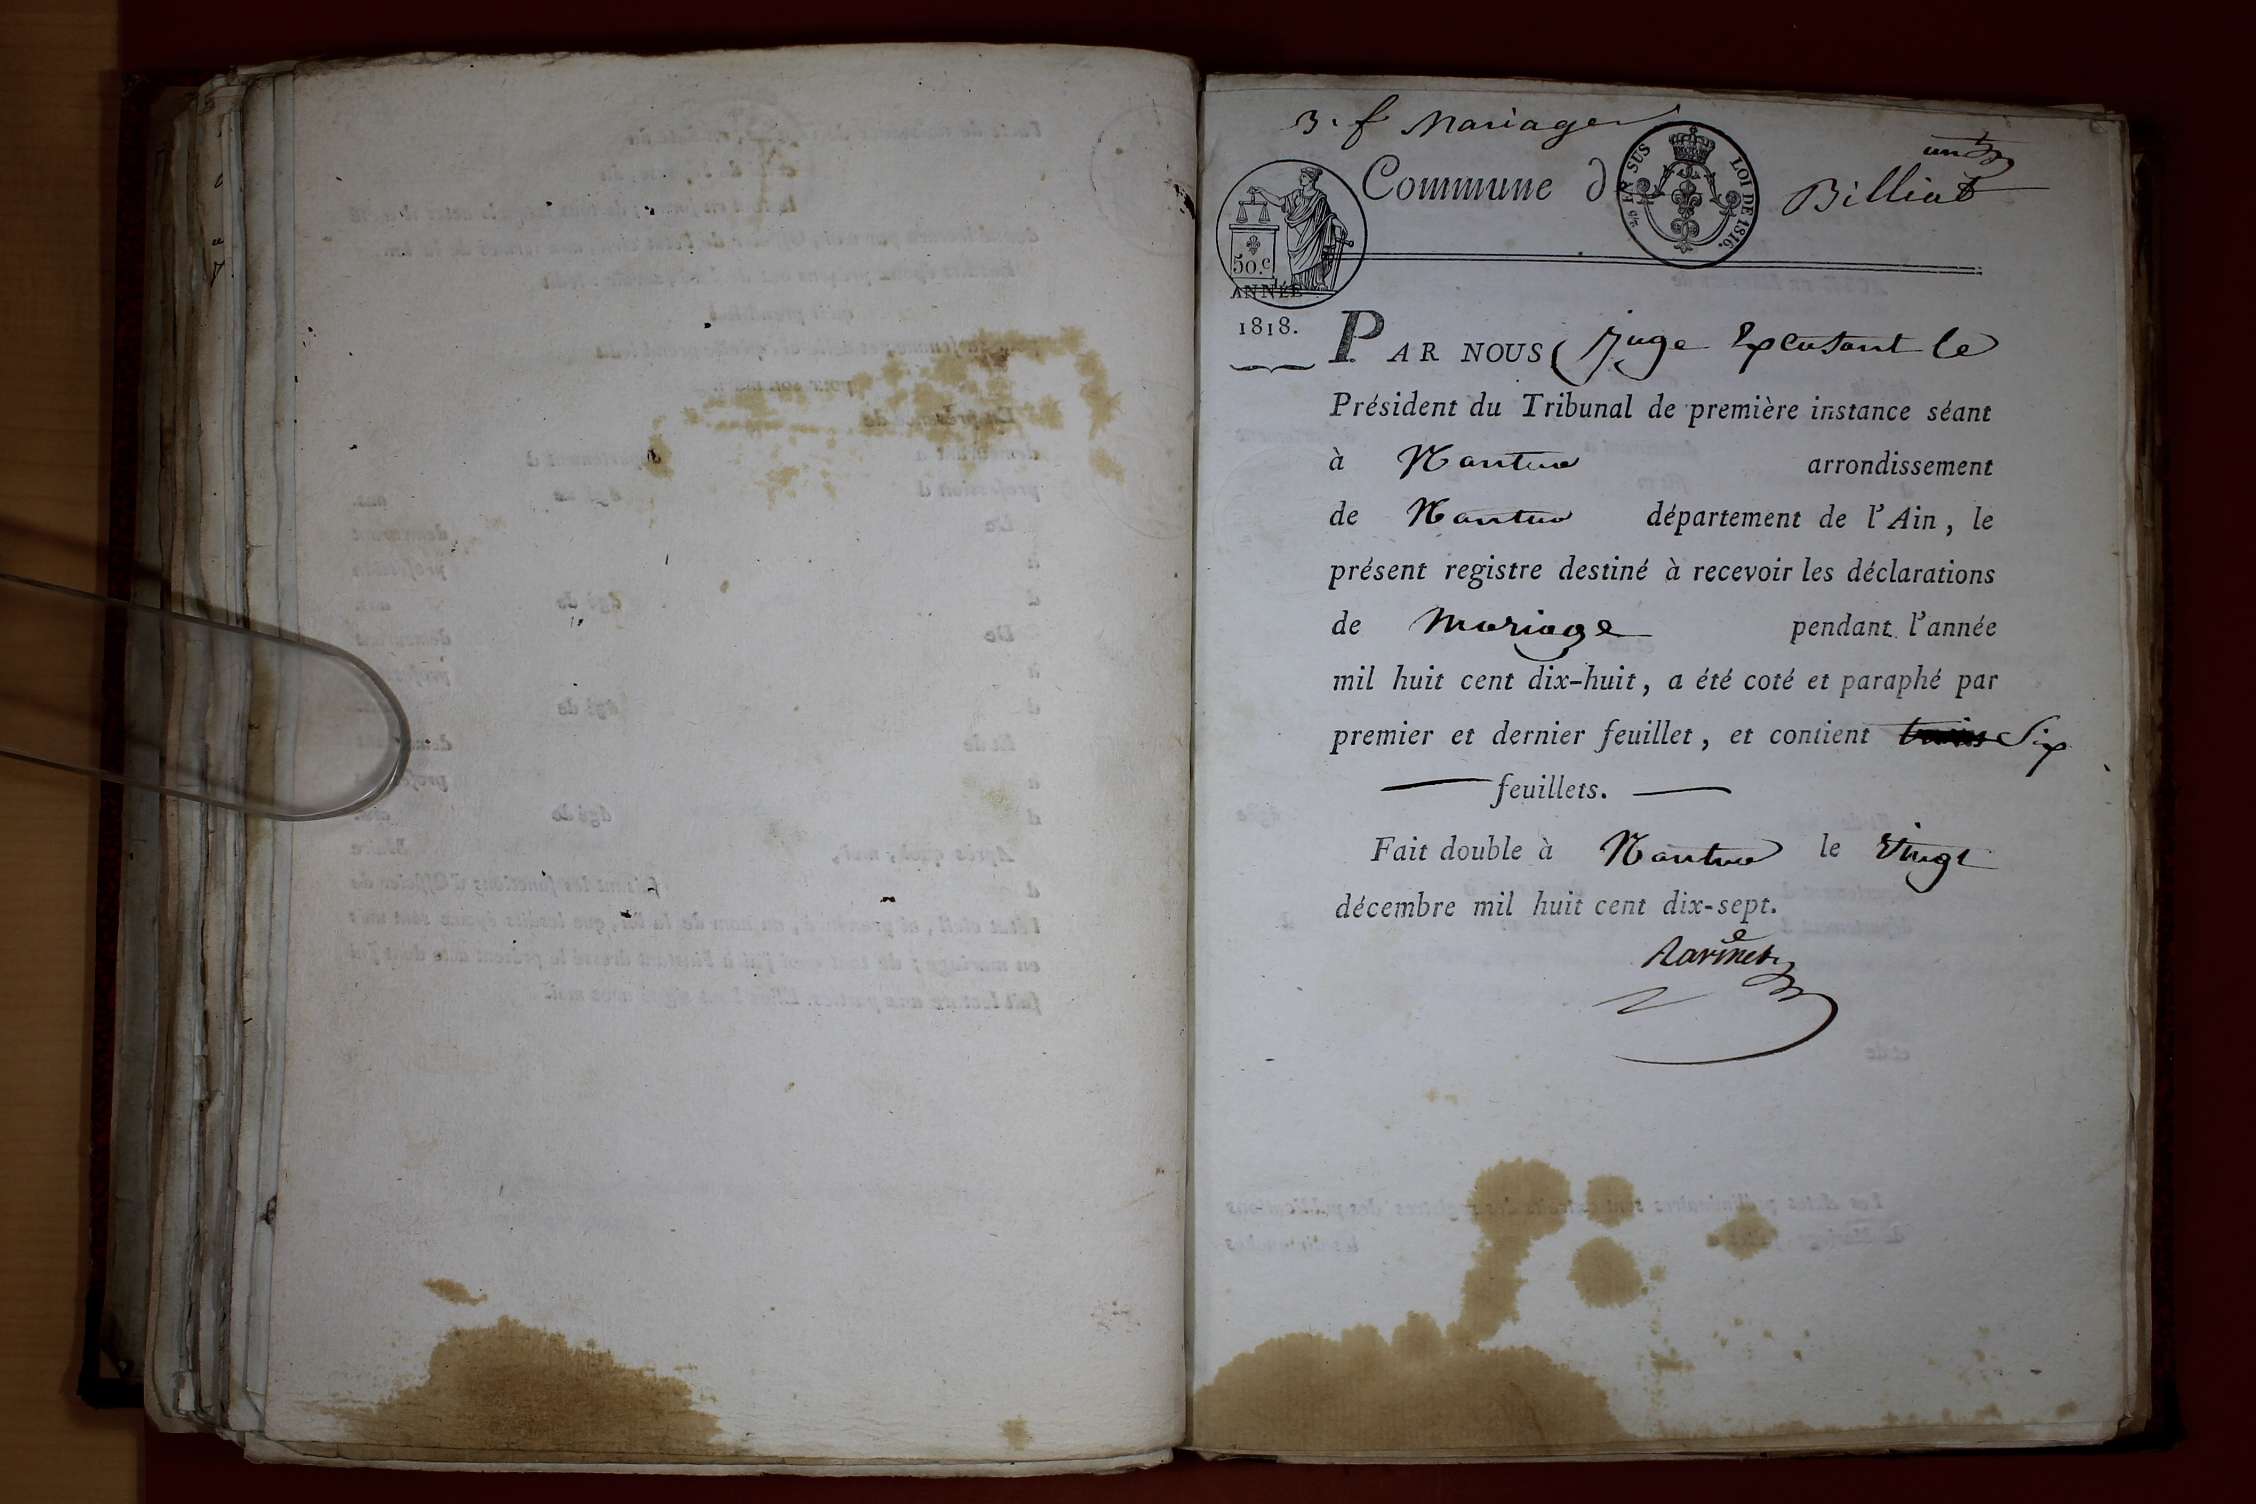 3. f Mariages
un
Commune d Billiat
EN SUS LOI DE 1816.
50.c
ANNÉE
1818.
PAR NOUS Juge Excusant le
Président du Tribunal de première instance séant
à Nantua arrondissement
de Nantua département de l'Ain, le
présent registre destiné à recevoir les déclarations
de mariage pendant l'année
mil huit cent dix-huit, a été coté et paraphé par
premier et dernier feuillet, et contient trois Six
feuillets.
Fait double à Nantua le vingt
décembre mil huit cent dix-sept.